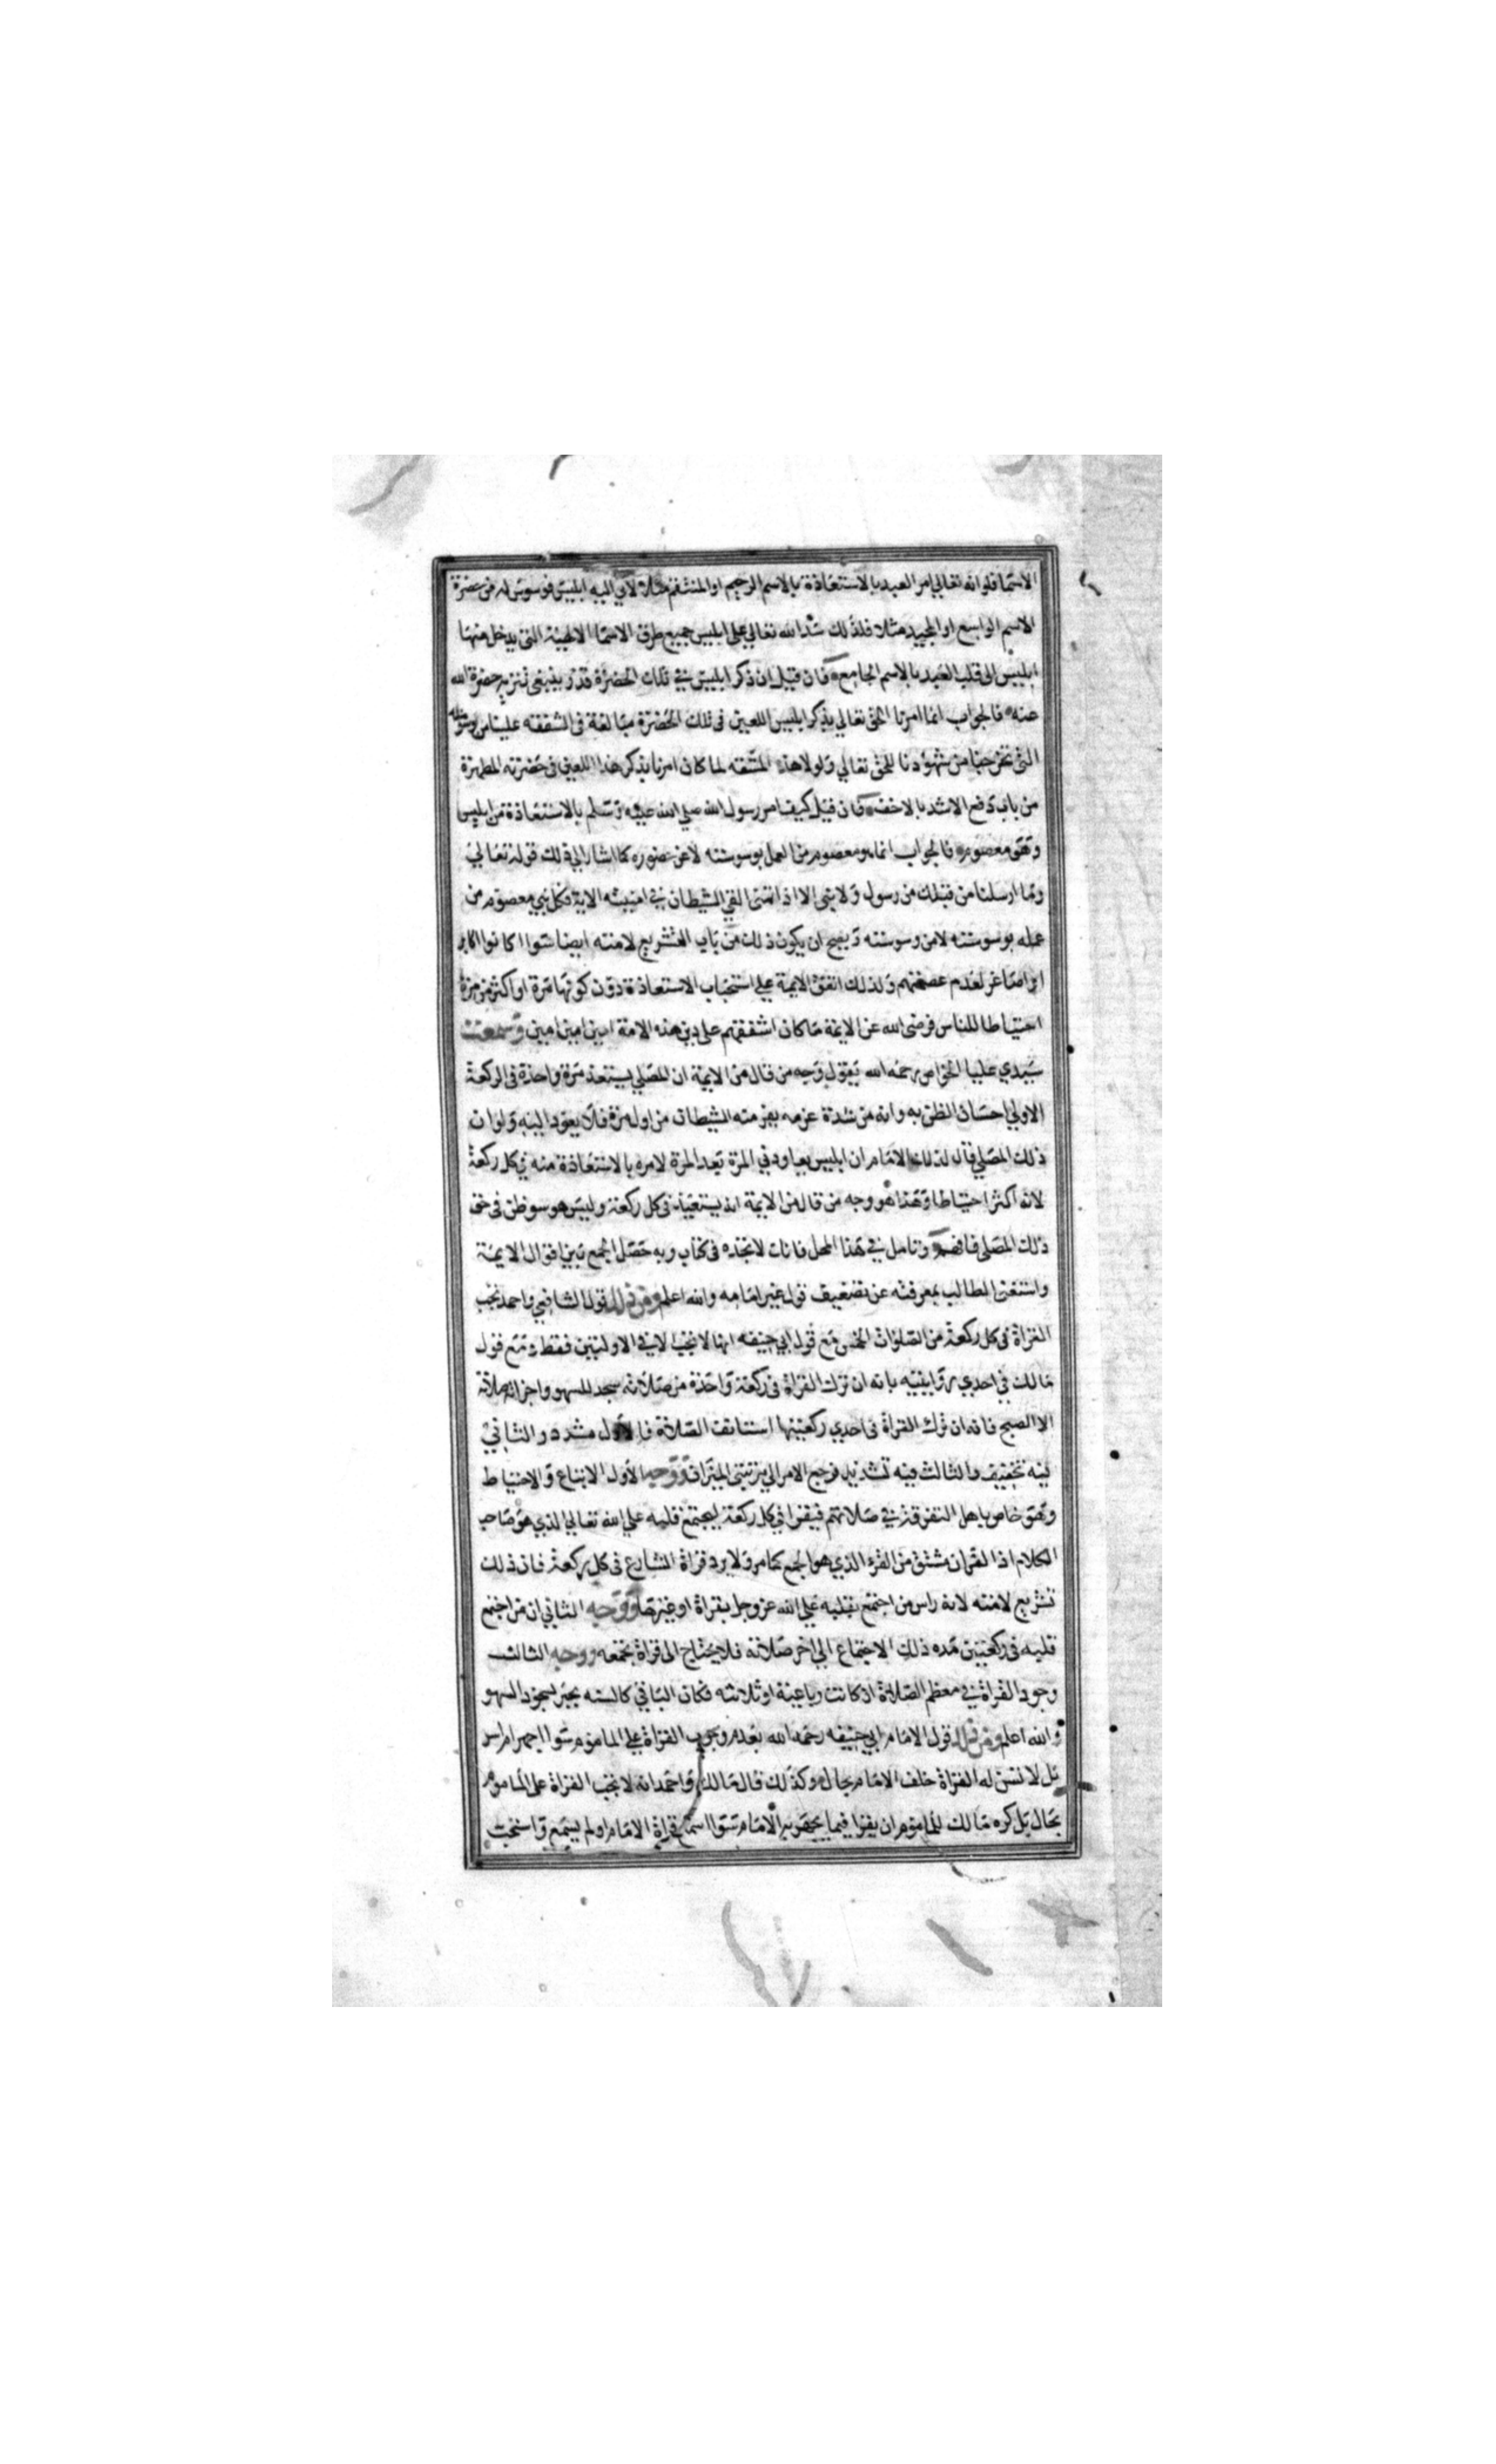 الاسما فلو انه تعالي امر العبد بالاستعاذة بالاسم الرحيم او المنتقم مثلا لأتي اليه ابليس فوسوس له من حضرة
الاسم الواسع او المجيد مثلا فلذلك سد الله تعالي علي ابليس جميع طرق الاسما الالهية التي يدخل منها
ابليس الي قلب العبد بالاسم الجامع فان قيل ان ذكر ابليس في تلك الحضرة قذر ينبغي تنزيه حضرة الله
عنه فالجواب انما امرنا الحق تعالي بذكر ابليس اللعين في تلك الحضرة مبالغة في الشفقه علينا من وسوسته
التي تخرجنا من شهودنا للحق تعالي ولولا هذه المشقه لما كان امرنا بذكر هذا اللعين في حضرته المطهرة
من باب دفع الاشد بالاخف فان قيل كيف امر رسول الله صلي الله عليه وسلم بالاستعاذة من ابليس
وهو معصوم فالجواب انما هو معصوم من العمل بوسوسته لا عن حضوره كما اشار الي ذلك قوله تعالي
وما ارسلنا من قبلك من رسول ولا نبي الا اذا تمني القي الشيطان في امنيته الاية فكل نبي معصوم من
عمله بوسوسته لا من وسوسته ويصح ان يكون ذلك من باب التشريع لامته ايضا سوا كانوا اكابر
او اصاغر لعدم عصمتهم ولذلك اتفق الايمة علي استحباب الاستعاذة دون كونها مرة او اكثر من مرة
احتياطا للناس فرضي الله عن الايمة ما كان اشفقهم علي دين هذه الامة امين امين امين وسمعت
سيدي عليا الخواص رحمه الله يقول وجه من قال من الايمة ان المصلي يستعذ مرة واحدة في الركعة
الاولي احسان الظن به وانه من شدة عزمه يفر منه الشيطان من اول مرة فلا يعود اليه ولو ان
ذلك المصلي قال لذلك الامام ان ابليس يعاودني المرة بعد المرة لامره بالاستعاذة منه في كل ركعة
لانه اكثر احتياطا وهذا هو وجه من قال من الايمة انه يستعيذ في كل ركعة وليس هو سو ظن في حق
ذلك المصلي فافهم وتامل في هذا المحل فانك لا تجده في كتاب وبه حصل الجمع بين اقوال الايمة
واستغني الطالب بمعرفته عن تضعيف قول غير امامه والله اعلم ومن ذلك قول الشافعي واحمد تجب
القراة في كل ركعة من الصلوات الخمس مع قول ابي حنيفه انها لا تجب الا في الاوليتين فقط ومع قول
مالك في احدي روايتيه بانه ان ترك القراة في ركعة واحدة من صلاته سجد للسهو واجزاته صلاته
الا الصبح فانه ان ترك القراة في احدي ركعتيها استانف الصلاة فالاول مشدد والثاني
فيه تخفيف والثالث فيه تشديد فرجع الامر الي مرتبتي الميزان ووجه الاول الاتباع والاحتياط
وهو خاص باهل التفرقة في صلاتهم فيقرا في كل ركعة ليجتمع قلبه علي الله تعالي الذي هو صاحب
الكلام اذا القران مشتق من القرء الذي هو الجمع كما مر ولا يرد قراة الشارع في كل ركعة فان ذلك
تشريع لامته لانه راس من اجتمع بقلبه علي الله عز وجل بقراة او غيرها ووجه الثاني ان من اجتمع
قلبه في ركعتين مده ذلك الاجتماع الي اخر صلاته فلا يحتاج الي قراة تجمعه ووجه الثالث
وجود القراة في معظم الصلاة اذ كانت رباعية او ثلاثيه فكان الباقي كالسنه يجبر بسجود السهو
والله اعلم ومن ذلك قول الامام ابي حنيفه رحمه الله بعدم وجوب القراة علي الماموم سوا اجهر ام اسر
بل لا تسن له القراة خلف الامام بحال وكذلك قال مالك واحمد انه لا تجب القراة علي الماموم
بحال بل كره مالك للماموم ان يقرا فيما يجهر به الامام سوا اسمع قراة الامام او لم يسمع واستحب